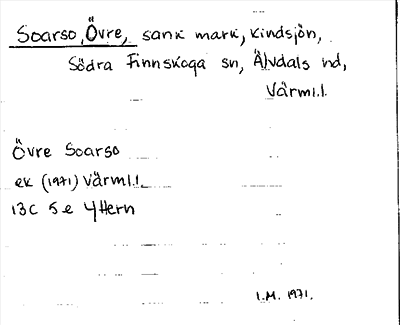 Soarso, Övre, sank mark, Kindsjön,
Södra Finnskoga sn, Älvdals hd,
Värml.
Övre Soarso
ek (1971) Värml.
13C 5e Yttern
I.M. 1971.